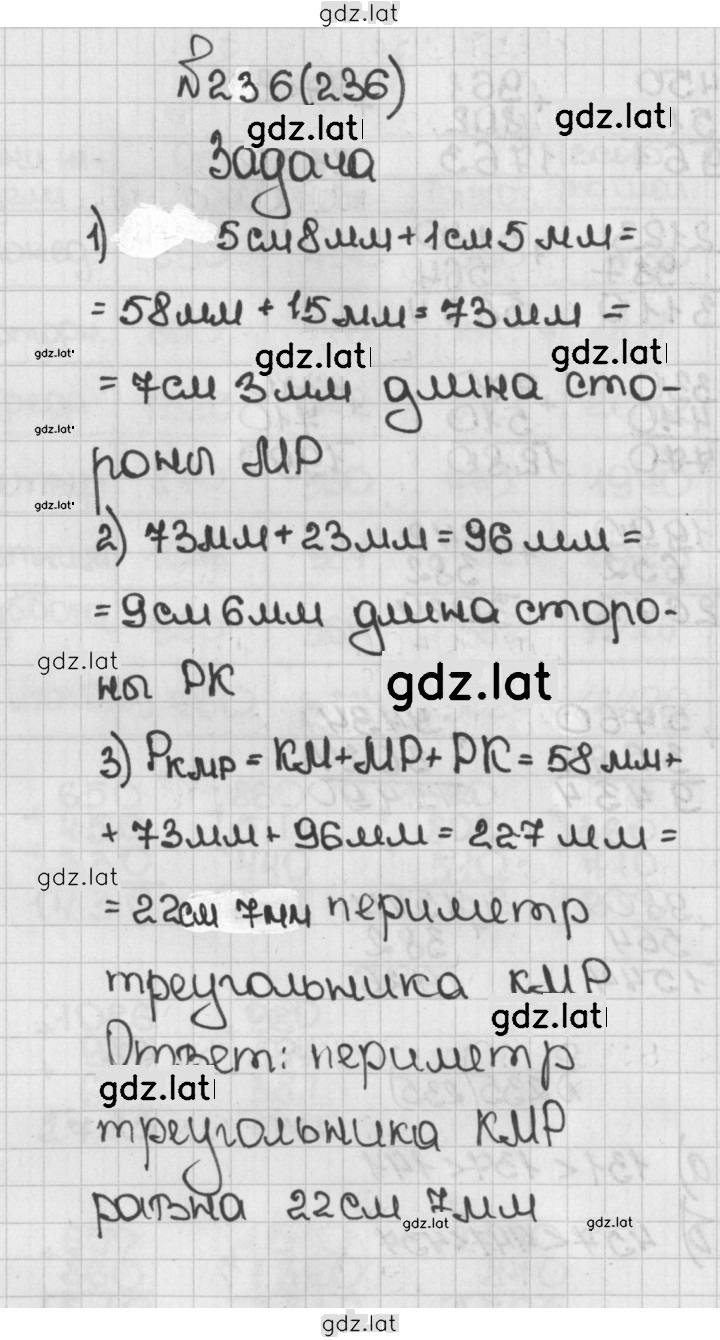 gdz.lat
№236(236)
gdz.lat gdz.lat
Задача
1) 5см8мм+1см5мм=
=58мм+15мм=73мм=
gdz.lat gdz.lat gdz.lat
=7см 3мм длина сто-
gdz.lat
роны МР
gdz.lat
2) 73мм+23мм=96мм=
=9см6мм длина сторо-
gdz.lat gdz.lat
ны РК
3) Ркмр=КМ+МР+РК=58мм+
+73мм+96мм=227мм=
gdz.lat
=22см 7мм периметр
треугольника КМР
gdz.lat
Ответ: периметр
gdz.lat
треугольника КМР
равна 22см 7мм
gdz.lat gdz.lat
gdz.lat